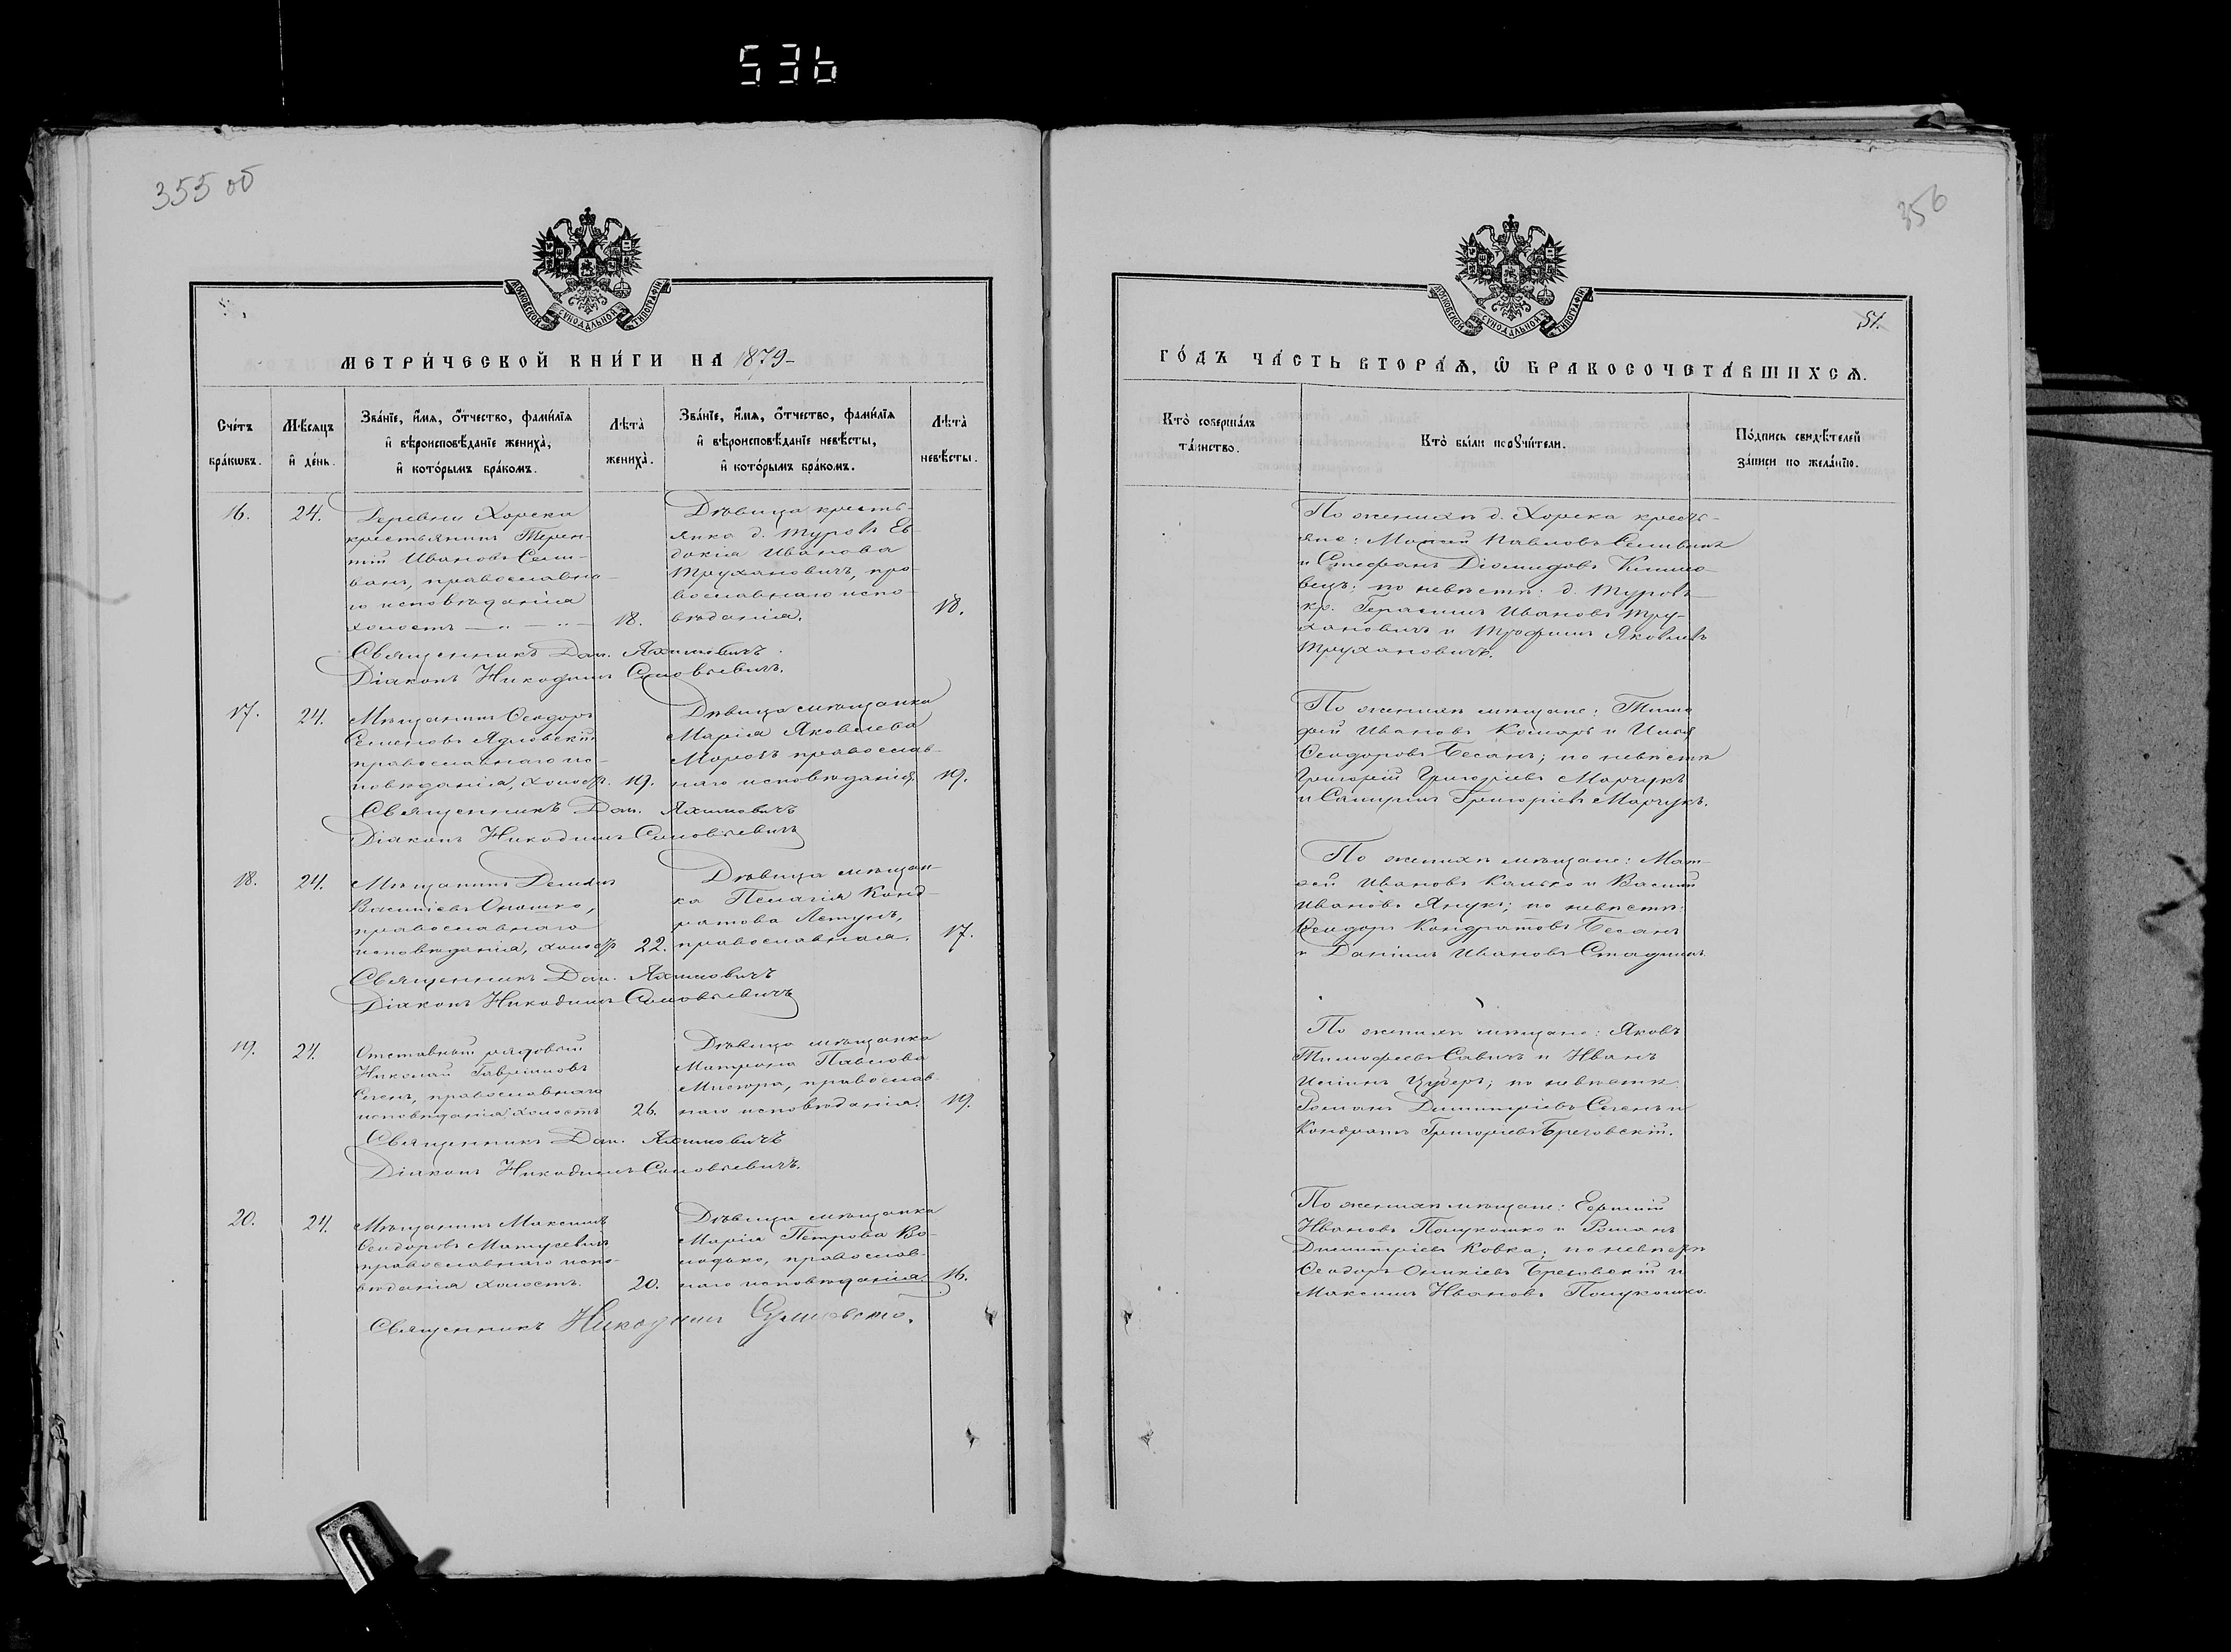 536
355 об
МОСКОВСКОЙ СѴНОДАЛЬНОЙ ТИПОГРАФІИ
МЕТРИ́ЧЕСКОЙ КНИ́ГИ НА 1879
Сче́тъ бра́кωвъ.
Мѣ́сяцъ и҆ де́нь.
Зва́нїе, и҆́мя, ѻ҆́тчество, фами́лїя
и҆ вѣроисповѣ́данїе женихà,
и҆ кото́рымъ бра́комъ.
Лѣ́та̀ женихà.
Зва́нїе, и҆́мя, ѻ҆́тчество, фами́лїя
и҆ вѣроисповѣ́данїе невѣ́сты,
и҆ кото́рымъ бра́комъ.
Лѣ́та̀ невѣ́сты.
16.
24.
Деревни Хорска
крестьянинъ Терен-
тій Ивановъ Сели-
ванъ, православна-
го исповѣданія
холостъ
18.
Дѣвица кресть-
янка д. Туровъ Ев-
докія Иванова
Трухановичъ, пра-
вославнаго испо-
вѣданія.
18.
Священникъ Дам. Яхимовичъ.
Діаконъ Никодимъ Соловьевичъ.
17.
24.
Мѣщанинъ Ѳеодоръ
Семеновъ Ядловскій
православнаго ис-
повѣданія, холостъ.
19.
Дѣвица мѣщанка
Марія Яковлева
Морозъ православ-
наго исповѣданія
19.
Священникъ Дам. Яхимовичъ
Діаконъ Никодимъ Соловьевичъ
18.
24.
Мѣщанинъ Демидъ
Василіевъ Оношко,
православнаго
исповѣданія, холостъ
22.
Дѣвица мѣщан-
ка Пелагія Конд-
ратова Летунъ,
православная.
17.
Священникъ Дам. Яхимовичъ
Діаконъ Никодимъ Соловьевичъ
19.
24.
Отставный рядовый
Николай Гавріиловъ
Сеченъ, православнаго
исповѣданія холостъ
26.
Дѣвица мѣщанка
Матрона Павлова
православ-
наго исповѣданія.
19.
Священникъ Дам. Яхимовичъ
Діаконъ Никодимъ Соловьевичъ.
20.
24.
Мѣщанинъ Максимъ
Ѳеодоровъ Матусевичъ
православнаго испо-
вѣданія холостъ.
20.
Дѣвица мѣщанка
Марія Петрова Во-
лодько, православ-
наго исповѣданія
16.
Священникъ Никодимъ
356
МОСКОВСКОЙ СѴНОДАЛЬНОЙ ТИПОГРАФІИ
51.
ГО́ДЪ ЧА́СТЬ ВТОРА́Я, Ѽ БРАКОСОЧЕТА́ВШИХСЯ.
Кто̀ соверша́лъ
та́инство.
Кто̀ бы́ли порꙋчи́тели.
По́дпись свидѣ́телей
за́писи по жела́нїю.
По женихѣ д. Хорска кресть-
яне: Моисей Павловъ Селиванъ
и Стефанъ Діомидовъ Климо-
вецъ; по невѣстѣ: д. Туровъ
кр. Герасимъ Ивановъ Тру-
хановичъ и Трофимъ Яковлевъ
Трухановичъ.
По женихѣ мѣщане: Тимо-
фей Ивановъ Комаръ и Илья
Ѳеодоровъ Бесанъ; по невѣстѣ
Григорій Григоріевъ Марчукъ
и Самуилъ Григоріевъ Марчукъ.
По женихѣ мѣщане: Мат-
ѳей Ивановъ Калько и Василій
Ивановъ Янукъ; по невѣстѣ:
Ѳеодоръ Кондратовъ Бесанъ
и Даніилъ Ивановъ
По женихѣ мѣщане: Яковъ
Тимофеевъ Савичъ и Иванъ
Илiинъ по невѣстѣ
Романъ Димитріевъ Сеченъ и
Кондратъ Григоріевъ Бреговскій.
По женихѣ мѣщане:
Ивановъ Полукошко и Романъ
Димитріевъ Ковка; по невѣстѣ
Ѳеодоръ Оникіевъ Бреговскій и
Максимъ Ивановъ Полукошко.